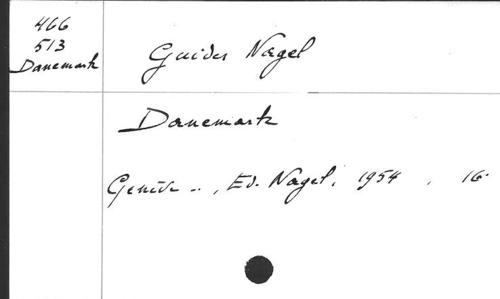 466
513
Danemark
Guides Nagel
Danemark
Genève .. , Ed. Nagel, 1954 , 16°